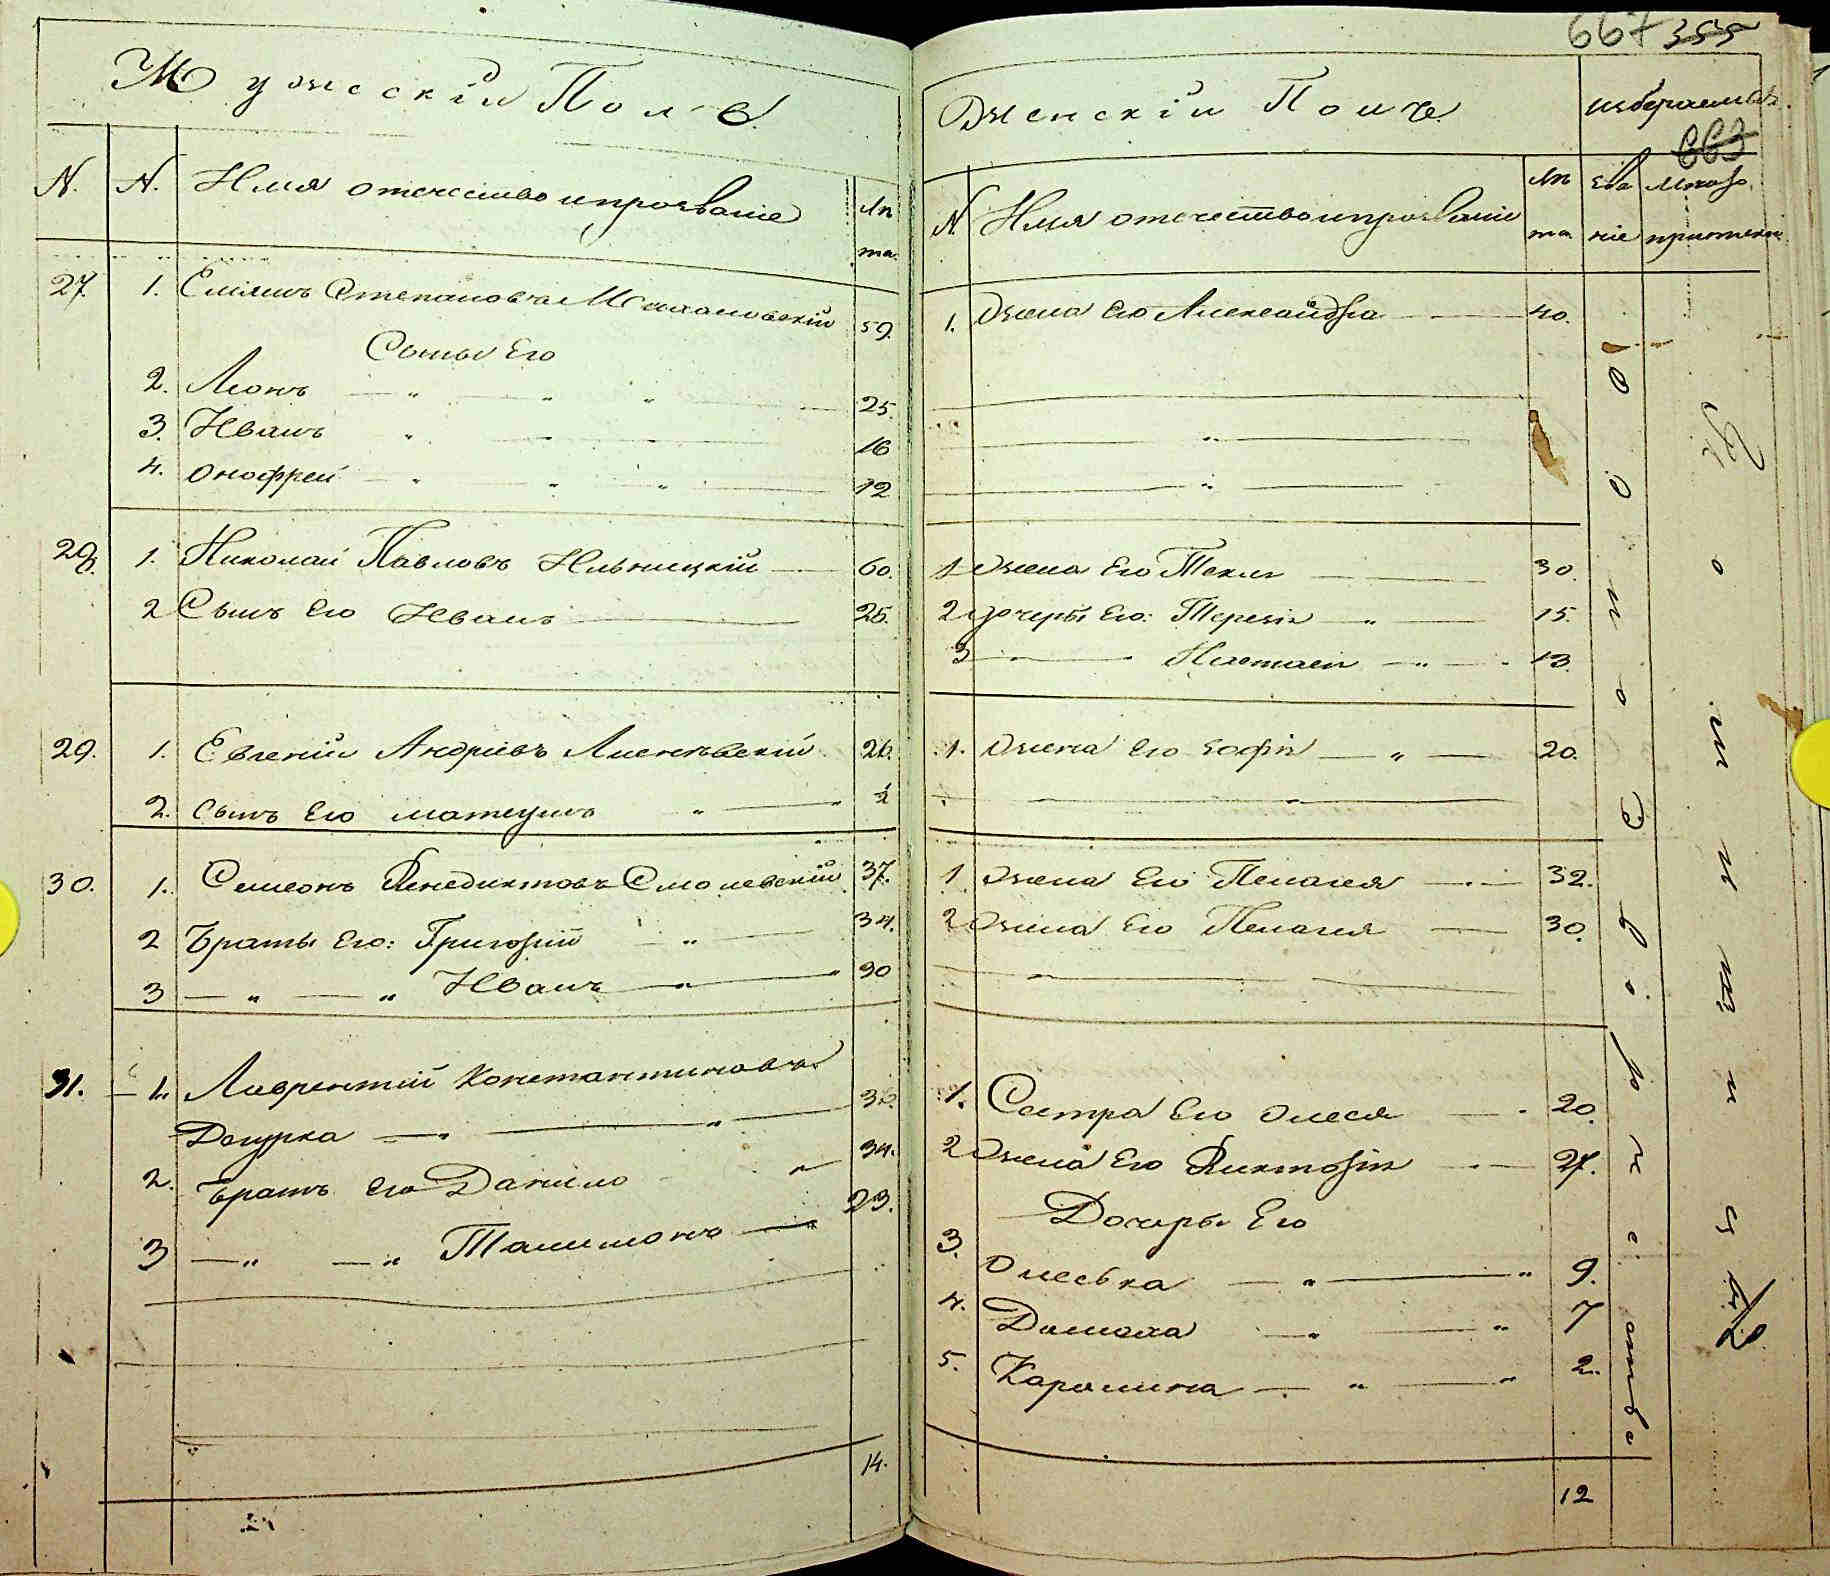 667 355
Мужескій Полъ.
N. N. Имя отечество и прозваніе Лѣта.
27. 1. Степановъ 59.
Сыны Его
2. Леонъ 25.
3. Иванъ 16
4. Онофрей 12
28. 1. Николай Павловъ Ильницкій 60.
2 Сынъ Его Иванъ 25.
29. 1. Евгеній Андріевъ 26.
2. Сынъ Его Матеушъ ½
30. 1. Симеонъ Венедиктовъ Смолевскій 37.
2 Браты Его: Григорій 34.
3 Иванъ 30
31. 1. Лаврентій Константиновъ
Доцурка
2. Братъ Его Данило 34.
3 23.
14.
Женскій Полъ
663
N Имя отечество и прозваніе Лѣта
1. Жена Его Александра 40.
1 Жена Его Текля 30.
2 Дочеры Его: Терезія 15.
3 Настасія 13.
1. Жена Его Зофія 20.
1 Жена Его Пелагея 32.
2 Жена Его Пелагея 30.
1. Сестра Его Олеся 20.
2 Жена Его Викторія 27.
Дочеры Его
3. Олеська 9.
4. Домаха 7
5. Каролина 2.
12